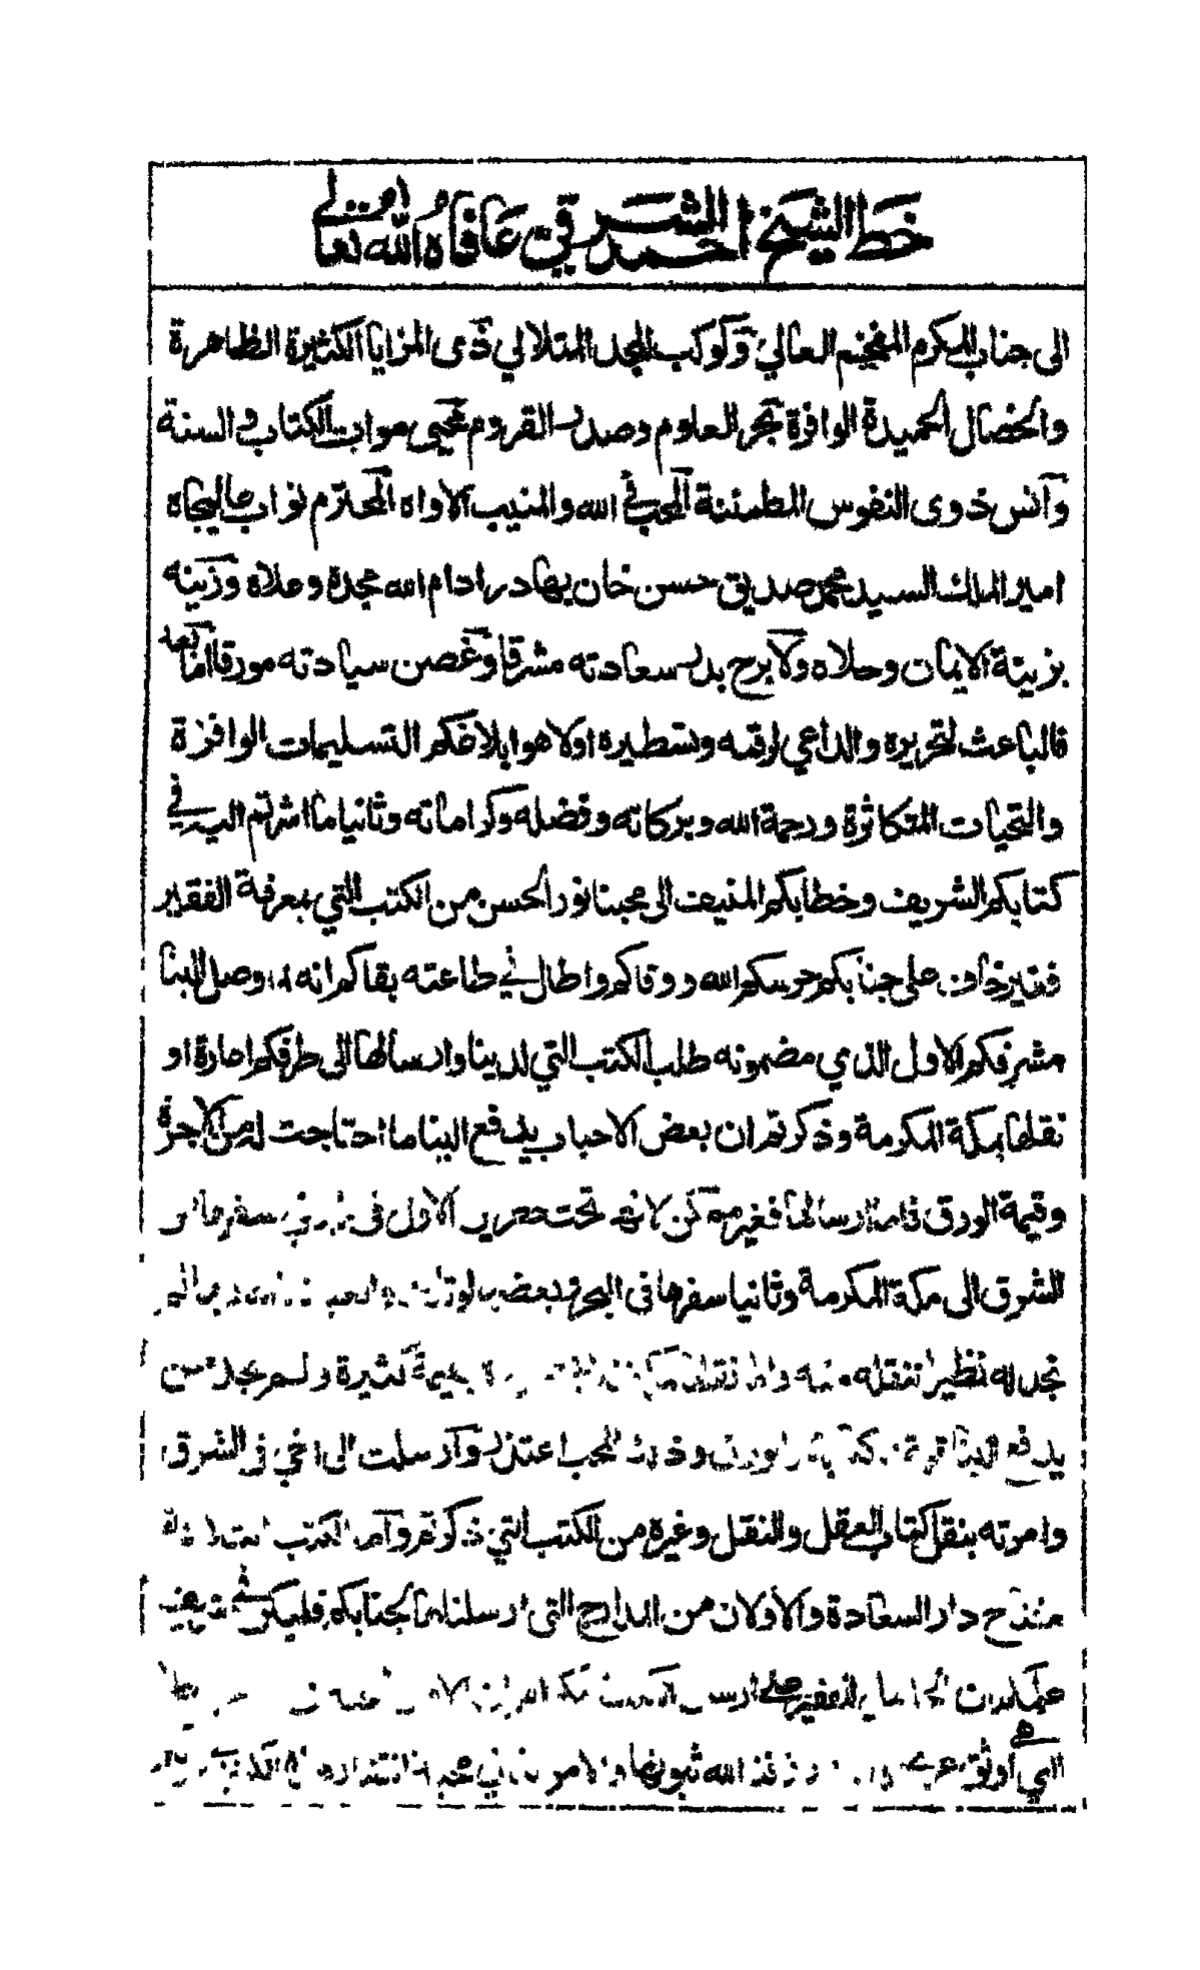 خط الشيخ احمد الشرقي عافاه الله تعالى
الى جناب المكرم المفخم العالي وكوكب المجد المتلالي ذى المزايا الكثيرة الظاهرة
والخصال الحميدة الوافرة بحر العلوم وصدر القروم محيى موات الكتاب والسنة
وآنس ذوى النفوس المطمئنة المحب في الله والمنيب الاواه المحترم نواب عاليجاه
امير الملك السيد محمد صديق حسن خان بهادر ادام الله مجده وعلاه وزينه
بزينة الايمان وحلاه ولا برح بدر سعادته مشرقا وغصن سيادته مورقا اما بعد
فالباعث لتحريره والداعي لرقمه وتسطيره اولا هو ابلاغكم التسليمات الوافرة
والتحيات المتكاثرة ورحمة الله وبركاته وفضله وكراماته وثانيا ما اشرتم اليه في
كتابكم الشريف وخطابكم المنيف الى محبنا نور الحسن من الكتب التي بمعرفة الفقير
فغير خاف على جنابكم حرسكم الله ووقاكم واطال في طاعته بقاكم انه لما وصل الينا
مشرفكم الاول الذي مضمونه طلب الكتب التي لدينا وارسالها الى طرفكم اعارة او
نقلها بمكة المكرمة وذكرتم ان بعض الاحباب يدفع الينا ما احتاجت له من الاجرة
وقيمة الورق فاما ارسالها فغير ممكن لانها تحت الاول في سفرها من
الشرق الى مكة المكرمة وثانيا سفرها في البحر فبعضها
نجد له نظيرا ننقله منه واما نقلها بقيمة كثيرة ولم نجد من
يدفع الينا وذلك المحب اعتذر وارسلت الى اخي في الشرق
وامرته بنقل كتاب العقل والنقل وغيره من الكتب التي ذكرتم واما الكتب
مفتاح دار السعادة والاولان من المدارج التي ارسلناها لجنابكم فليكن في شريف
الفقير
التي اوثق الله